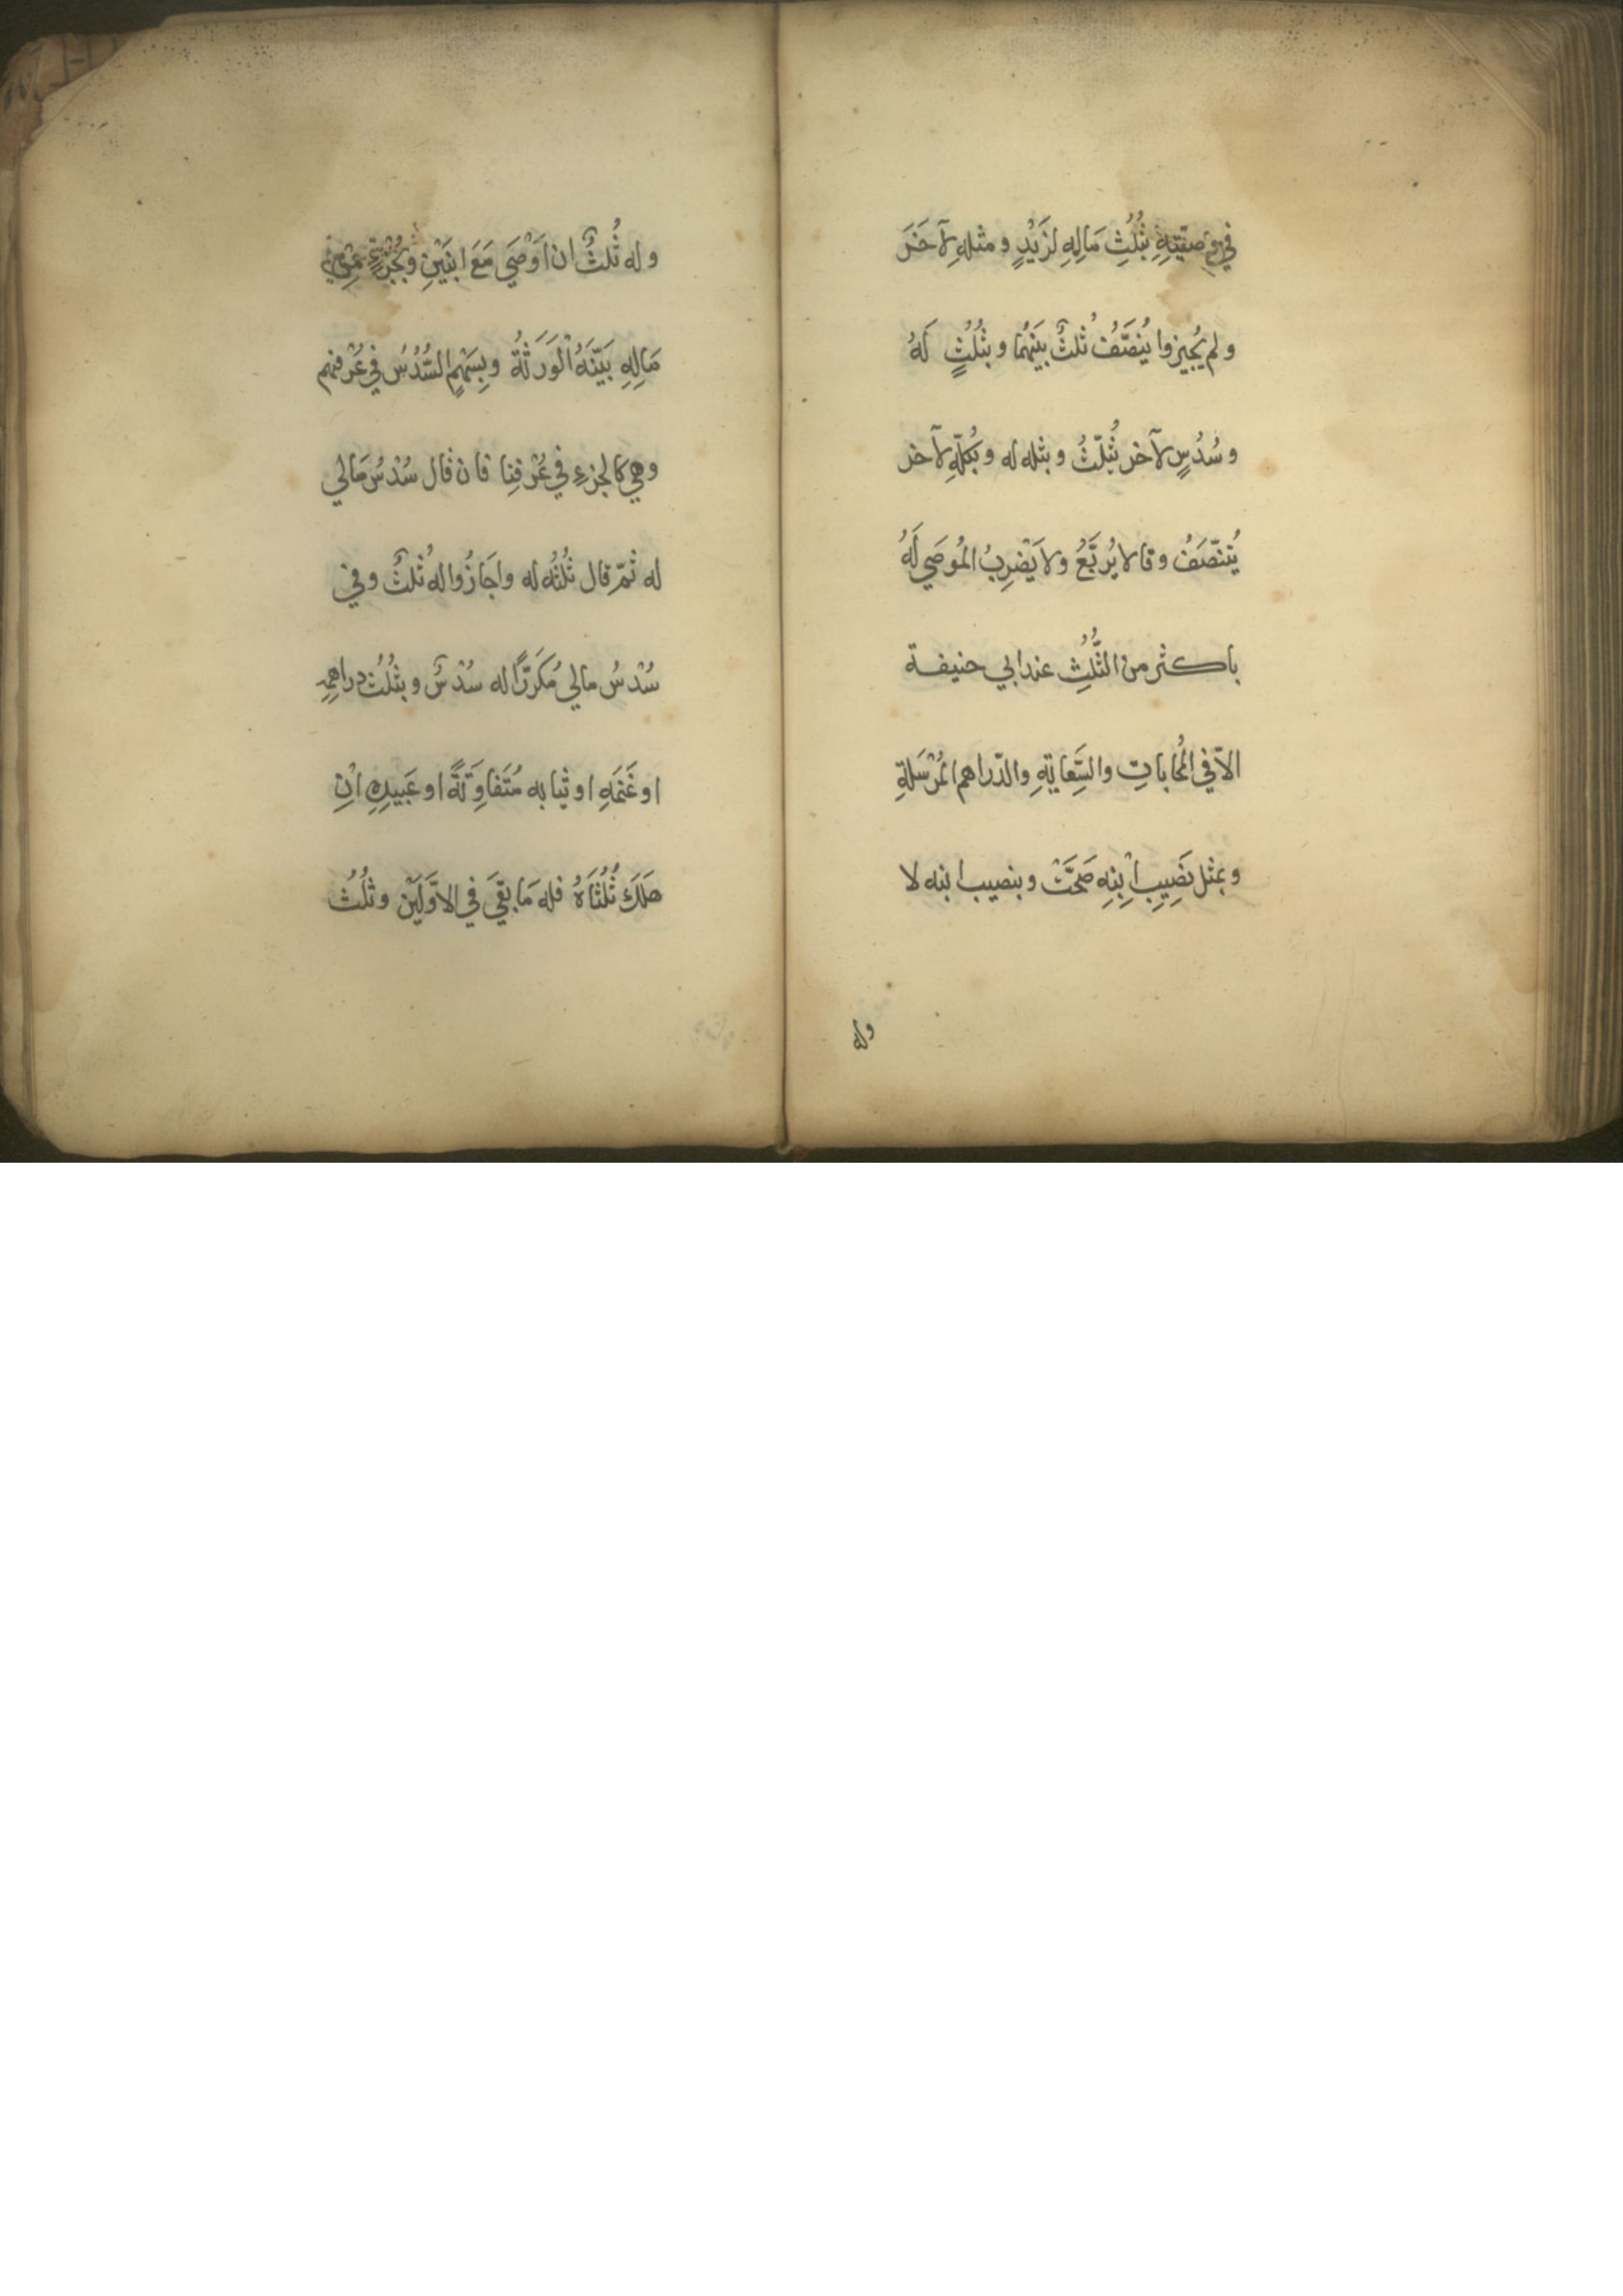 في وصيّتِهِ بثُلُثِ مَالِهِ لزَيْدٍ ومثلهِ لآخَرَ
ولم يُجيزوا يُنصَّفُ ثُلثٌ بَيْنَهُما وبثُلُثٍ لَهُ
وسُدُسٍ لآخر يُثلّثُ وبثلثه له وبكُلّهِ لآخر
يُتنصّفُ وقالا يُربَّعُ ولا يَضْرِبُ المُوصَي لَهُ
باكثر من الثُّلُثِ عند ابي حنيفة
الاّ في المُحاباتِ والسِّعايَةِ والدّراهم المُرْسَلةِ
وبمثل نَصِيبِ اْبِنِهِ صَحَّتْ وبنصيب ابنه لا
وله
وله ثُلثٌ ان اَوْصَي مَعَ ابنَيْنِ وبجُزْءٍ مِنْ
مَالِهِ بَيَّنَهُ اْلوَرَثَةُ وبِسَهْمٍ السُّدُسُ في عُرْفهم
وهي كالجزءِ في عُرْفِنا فان قال سُدْسُ مَالي
له ثمّ قال ثُلُثُه له واجَازُوا له ثُلثٌ وفي
سُدْسُ مالي مُكَرَّرًا له سُدْسٌ وبثُلُثِ دراهِمِهِ
او غَنَمَهِ او ثيابه مُتَفاوِتَةً او عَبيدِهِ اْنِ
هَلَكَ ثُلُثَاهُ فله مَا بقَيَ في الاوّلَيْنِ وثلُثُ